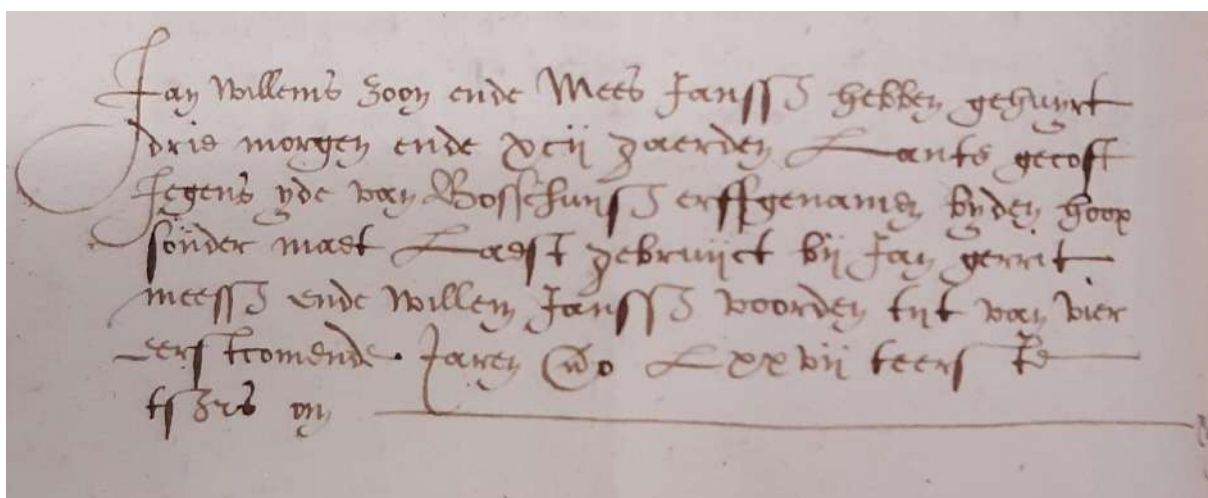 Jan Willems zoon ende Mees Janssz hebben gehuyrt
drie morgen ende xcij gaerden Lants gecoft
jegens yde van Bosschuijsz erffgenamen byden hoop
sonder maet Laest gebruijct bij Jan gerrit
meessz ende Willem Janssz voorden tijt van vier
eerstcomende Jaren Lxxvij teerst